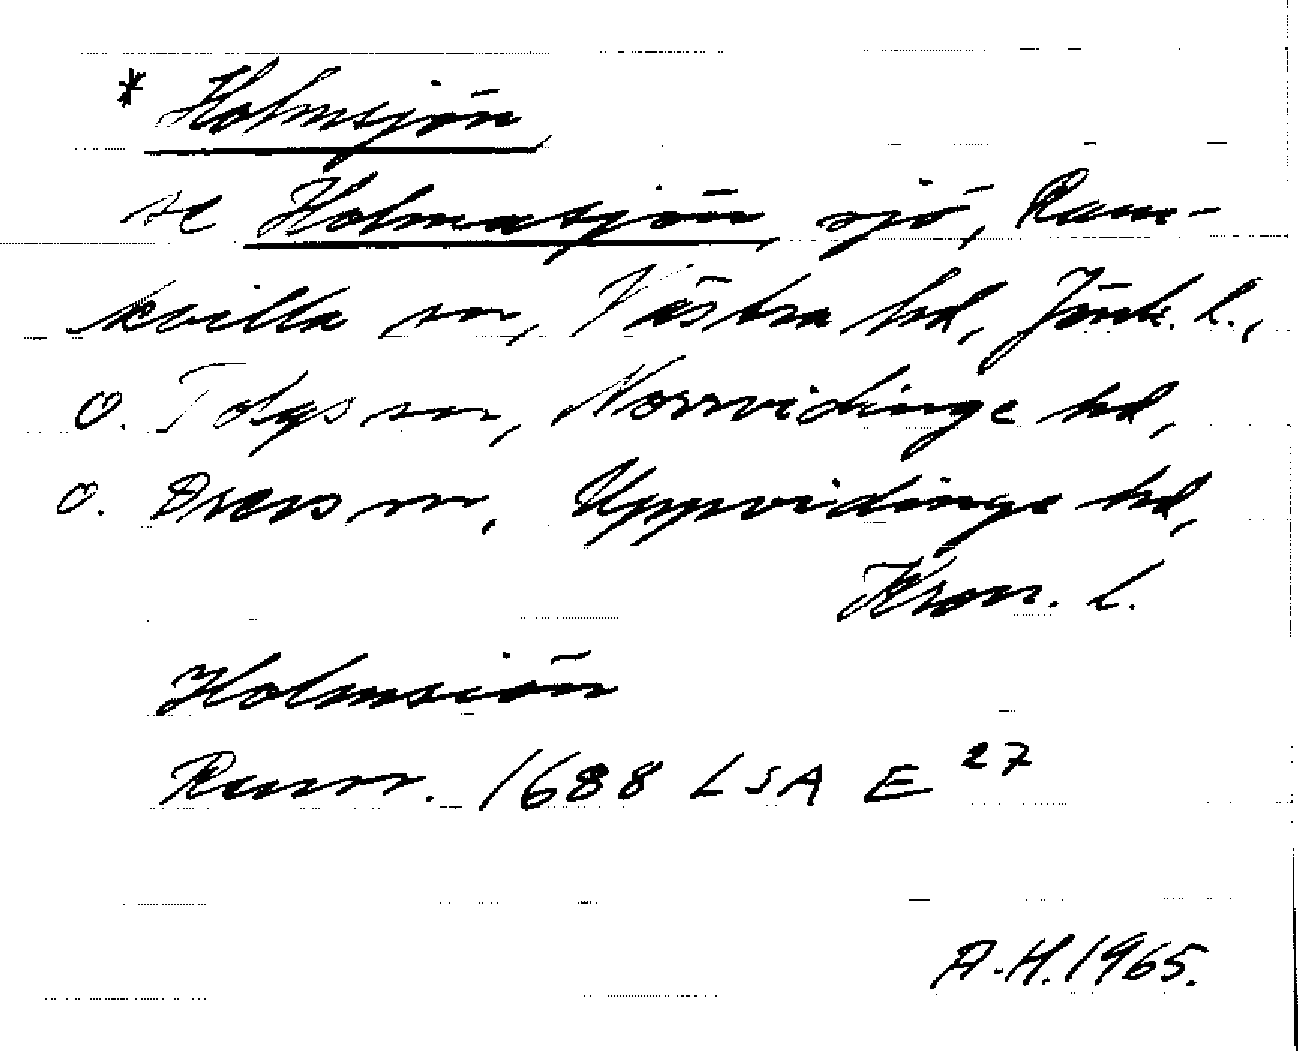 * Holmsjön
se Holmasjön, sjö, Ram-
kvilla sn, Västra hd, Jönk. l.,
o. Tolgs sn, Norrvidinge hd,
o. Drevs sn, Uppvidinge hd,
Kron. l.
Holmsiön
Rann. 1688 LSA E 27
A.H. 1965.